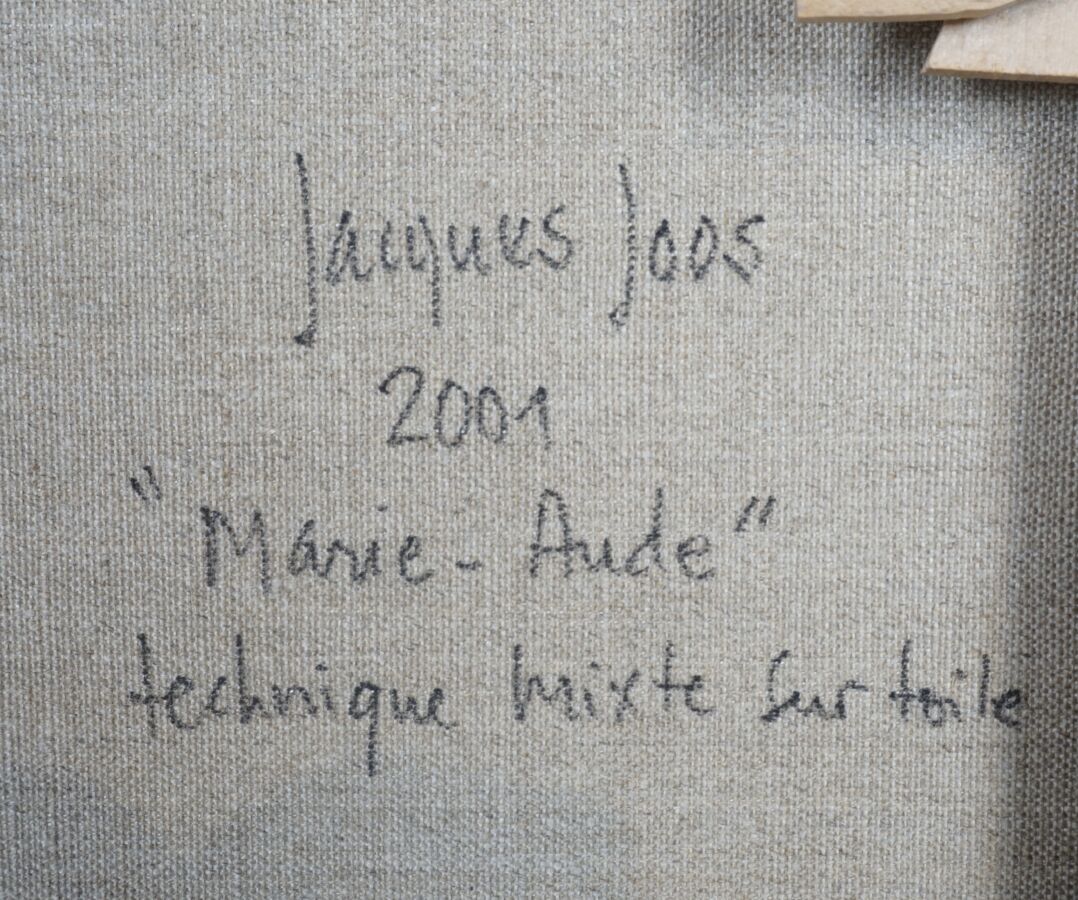 Jacques Joos
2001
"Marie-Aude"
technique mixte sur toile